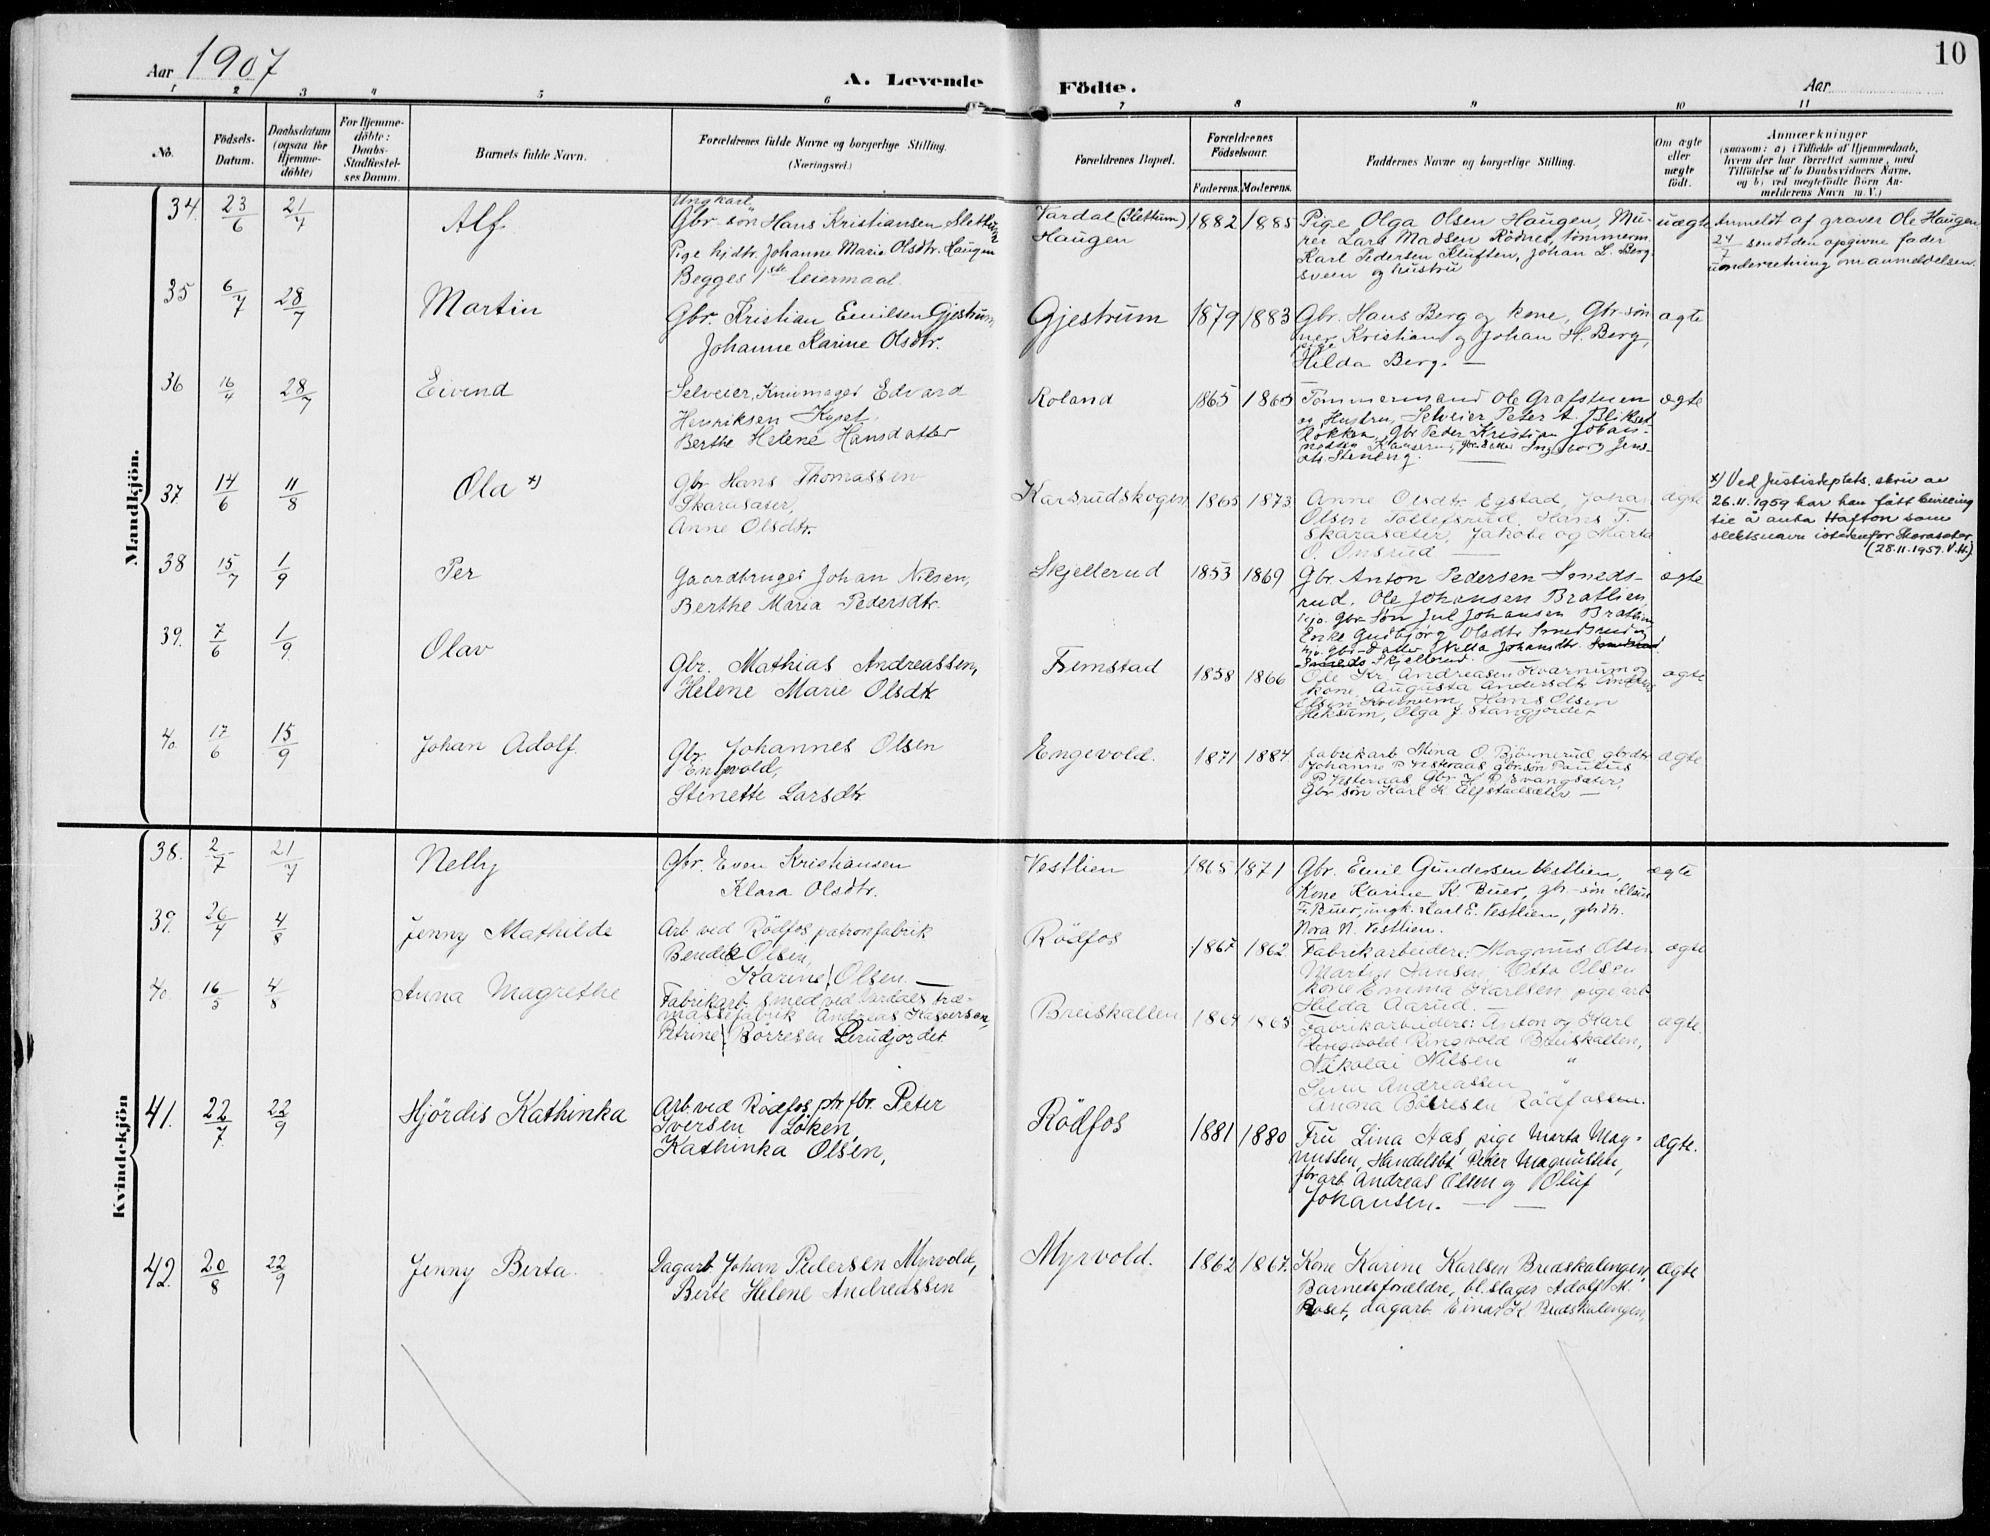 Aar 1907
A. Levende Födte.
Aar
10
1 2 3 4 5 6 7 8 9 10 11
No.
Födsels-Datum.
Daabsdatum (ogsaa for Hjemme-döbte)
For Hjemme-döbte: Daabs-Stadfæstel-ses Datum.
Barnets fulde Navn.
Forældrenes fulde Navne og borgerlige Stilling. (Næringsvei.)
Forældrenes Bopæl.
Forældrenes Födselsaar.
Faderens. Moderens.
Faddernes Navne og borgerlige Stilling.
Om ægte eller uægte födt.
Anmærkninger
(saasom: a) i Tilfælde af Hjemmedaab,
hvem der har forrettet samme, med
Tilföielse af to Daabsvidners Navne,
og b) ved uægtefödte Börn An-
melderens Navn m. V.)
Mandkjön.
34. 23/6 21/7 Alf
Ungkarl
Gbr.-søn Hans Kristiansen Slettum
Pige hjdtr. Johanne Marie Olsdtr. Haugen
Begges 1ste leiermaal
Vardal (Slettum)
Haugen
1882 1885
Pige Olga Olsen Haugen, Mu-
rer Lars Madsen Rödnes, tömmerm.
Karl Pedersen Kluften, Johan L. Berg-
sveen og hustru
uægte
Anmeldt af graver Ole Haugen
24/7 sendt den opgivne fader
underretning om anmeldelsen.
35 6/7 28/7 Martin
Gbr. Kristian Emilsen Gjestrum,
Johanne Karine Olsdtr.
Gjestrum 1879 1883
Gbr. Hans Berg og kone, Gbr-søn
ner Kristian og Johan H. Berg,
pige
Hilda Berg. —
ægte
36 16/4 28/7 Eivind
Selveier, Knivmager Edvard
Henriksen Kyset
Berthe Helene Hansdatter
Roland 1865 1865
Tömmermand Ole Grafstuen
og Hustru, Selveier Peter A. Blikset
Løkken, Gbr Peder Kristian Johan-
ægte
37 14/6 11/8 Ola x)
Gbr Hans Thomassen
Skarasæter,
Anne Olsdtr.
Karsrudskogen 1865 1873
Anne Olsdtr Egstad, Johan
Olsen Tollefsrud, Hans T.
Skarasæter, Jakobe og Marta
O. Onsrud —
ægte
x) Ved Justisdeptets. skriv av
26.11.1959 har han fått bevilling
til å anta Hafton som
slektsnavn istedenfor Skarasæter.
(28.11.1959. V.H.)
38 15/7 1/9 Per
Gaardbruger Johan Nilsen,
Berthe Maria Pedersdtr.
Skjellerud 1853 1869
Gbr. Anton Pedersen Smeds-
rud. Ole Johansen Bratlien,
Gbr-Søn Jul Johansen Bratlien
Enke Gudbjörg Olsdtr Smedsrud og
Gbr-datter Hilda Johansdtr.
Skjellerud.
ægte
39. 7/6 1/9 Olav
Gbr. Mathias Andreassen,
Helene Marie Olsdtr
Fremstad 1858 1866
Ole Kr. Andreasen Kvarnum og
kone Augusta Andersdtr
Olsen Kvernum, Hans Olsen
Hekshum, Olga J. Stangjordet
ægte
40. 17/6 15/9 Johan Adolf.
Gbr. Johannes Olsen
Engevold,
Stenette Larsdtr
Engevold. 1871 1884.
Fabrikarb Mina O Björnerud gbrdtr
Johanne P Vesteraas gbr.søn Paulus
P. Vesteraas, Gbr H. P. Evangsæter,
Gbr søn Karl K Elfstadsæter —
ægte
Kvindekjön
38. 2/7 21/7 Nelly
Gbr. Even Kristiansen
Klara Olsdtr.
Vestlien 1865 1871
Gbr. Emil Gundersen Vestlien,
Kone Karine K Buer, gbr-søn
Fr. Buer, ungk. Karl E. Vestlien, gbrdtr.
Nora N. Vestlien.
ægte
39. 26/4 4/8 Jenny Mathilde
Arb ved Rödfos patronfabrik
Bendik Olsen,
Karine Olsen
Rödfos 1867 1862
Fabrikarbeidere: Magnus Olsen
Martin Jansen, Otto Olsen
kone Emma Karlsen pige arb
Hilda Aarud. —
ægte
40 16/5 4/8 Anna Magrethe
Fabrikarb. smed ved Vardals træ-
massefabrik Andreas Kaspersen,
Petrine Börresen Lerudjordet
Breiskallen 1864 1865
Fabrikarbeidere: Anton og Karl
Ringvold Breiskallen,
Nikolai Nilsen "
Lina Andreassen "
Anna Börresen Rödfossen.
ægte
41. 22/7 22/9 Hjördis Kathinka
Arb. ved Rödfos ptr.fbr. Peter
Iversen Löken,
Kathinka Olsen,
Rödfos 1881 1880
Fru Lina Aas, pige Marta Mag-
nussen, Handelsbt Peter Magnussen,
fbr.arb. Andreas Olsen og Oluf
Johansen. — —
ægte.
42. 20/8 22/9 Jenny Berta
Dagarb Johan Pedersen Myrvold,
Berte Helene Andreassen
Myrvold. 1862 1867.
Kone Karine Karlsen Bredskalengen,
Barnetsforældre, bl.slager Adolf M.
Roset, dagarb. Einar K Bredskalengen,
ægte